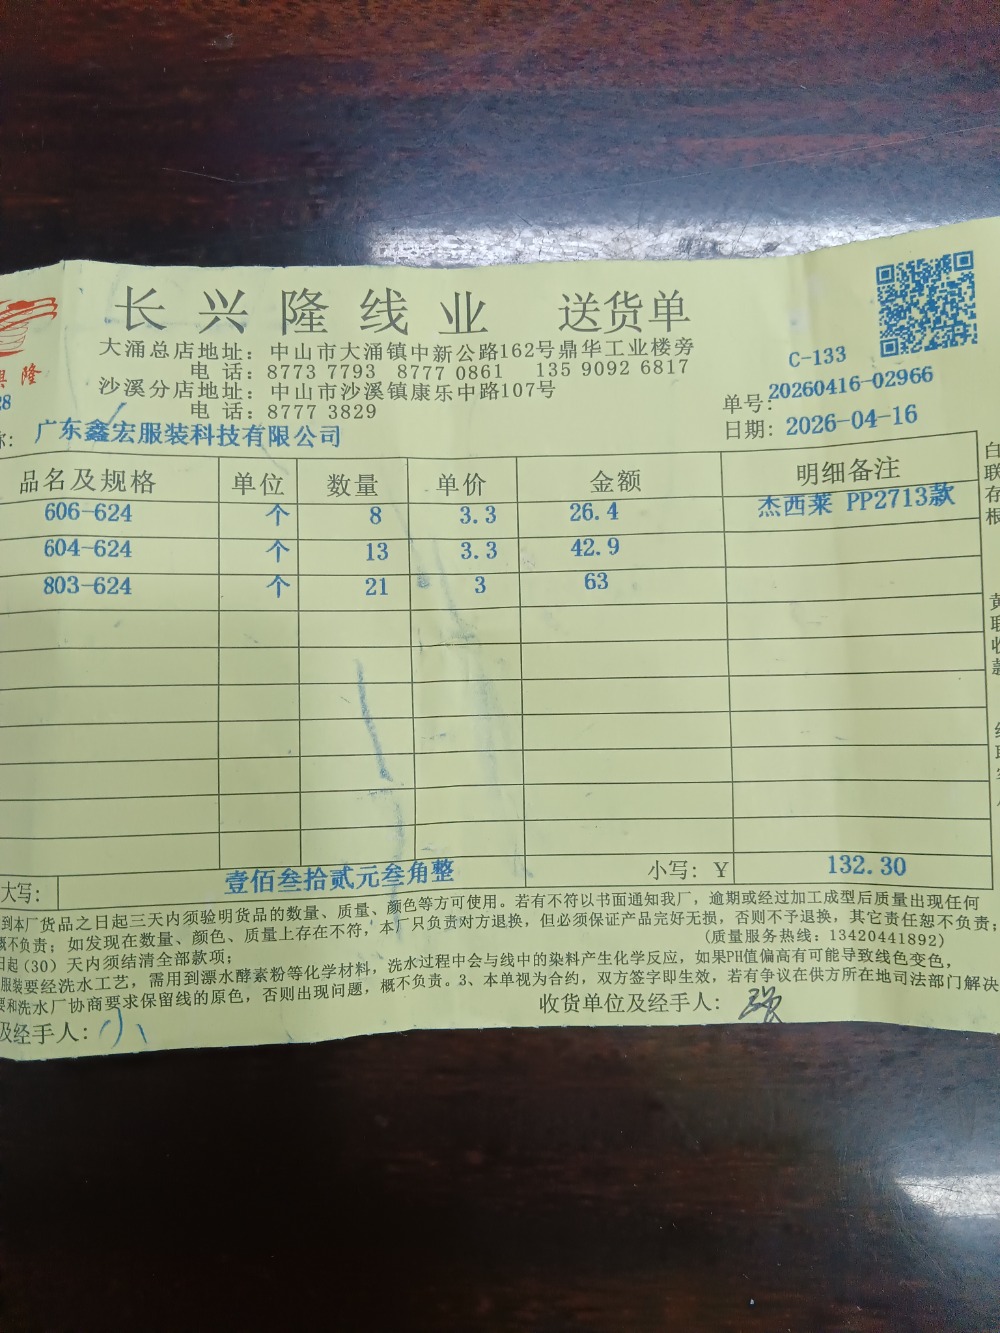 长兴隆线业 送货单
大涌总店地址：中山市大涌镇中新公路162号鼎华工业楼旁
电话：8773 7793 8777 0861 135 9092 6817
沙溪分店地址：中山市沙溪镇康乐中路107号
电话：8777 3829
隆
28
C-133
单号：20260416-02966
日期：2026-04-16
称：广东鑫宏服装科技有限公司
品名及规格 单位 数量 单价 金额 明细备注
606-624 个 8 3.3 26.4 杰西莱 PP2713款
604-624 个 13 3.3 42.9
803-624 个 21 3 63
大写：壹佰叁拾贰元叁角整 小写：¥ 132.30
到本厂货品之日起三天内须验明货品的数量、质量、颜色等方可使用。若有不符以书面通知我厂，逾期或经过加工成型后质量出现任何
概不负责；如发现在数量、颜色、质量上存在不符，本厂只负责对方退换，但必须保证产品完好无损，否则不予退换，其它责任恕不负责；
日起（30）天内须结清全部款项；
（质量服务热线：13420441892）
服装要经洗水工艺，需用到漂水酵素粉等化学材料，洗水过程中会与线中的染料产生化学反应，如果PH值偏高有可能导致线色变色，
要和洗水厂协商要求保留线的原色，否则出现问题，概不负责。3、本单视为合约，双方签字即生效，若有争议在供方所在地司法部门解决
及经手人：小
收货单位及经手人：
白联存根
黄联收款